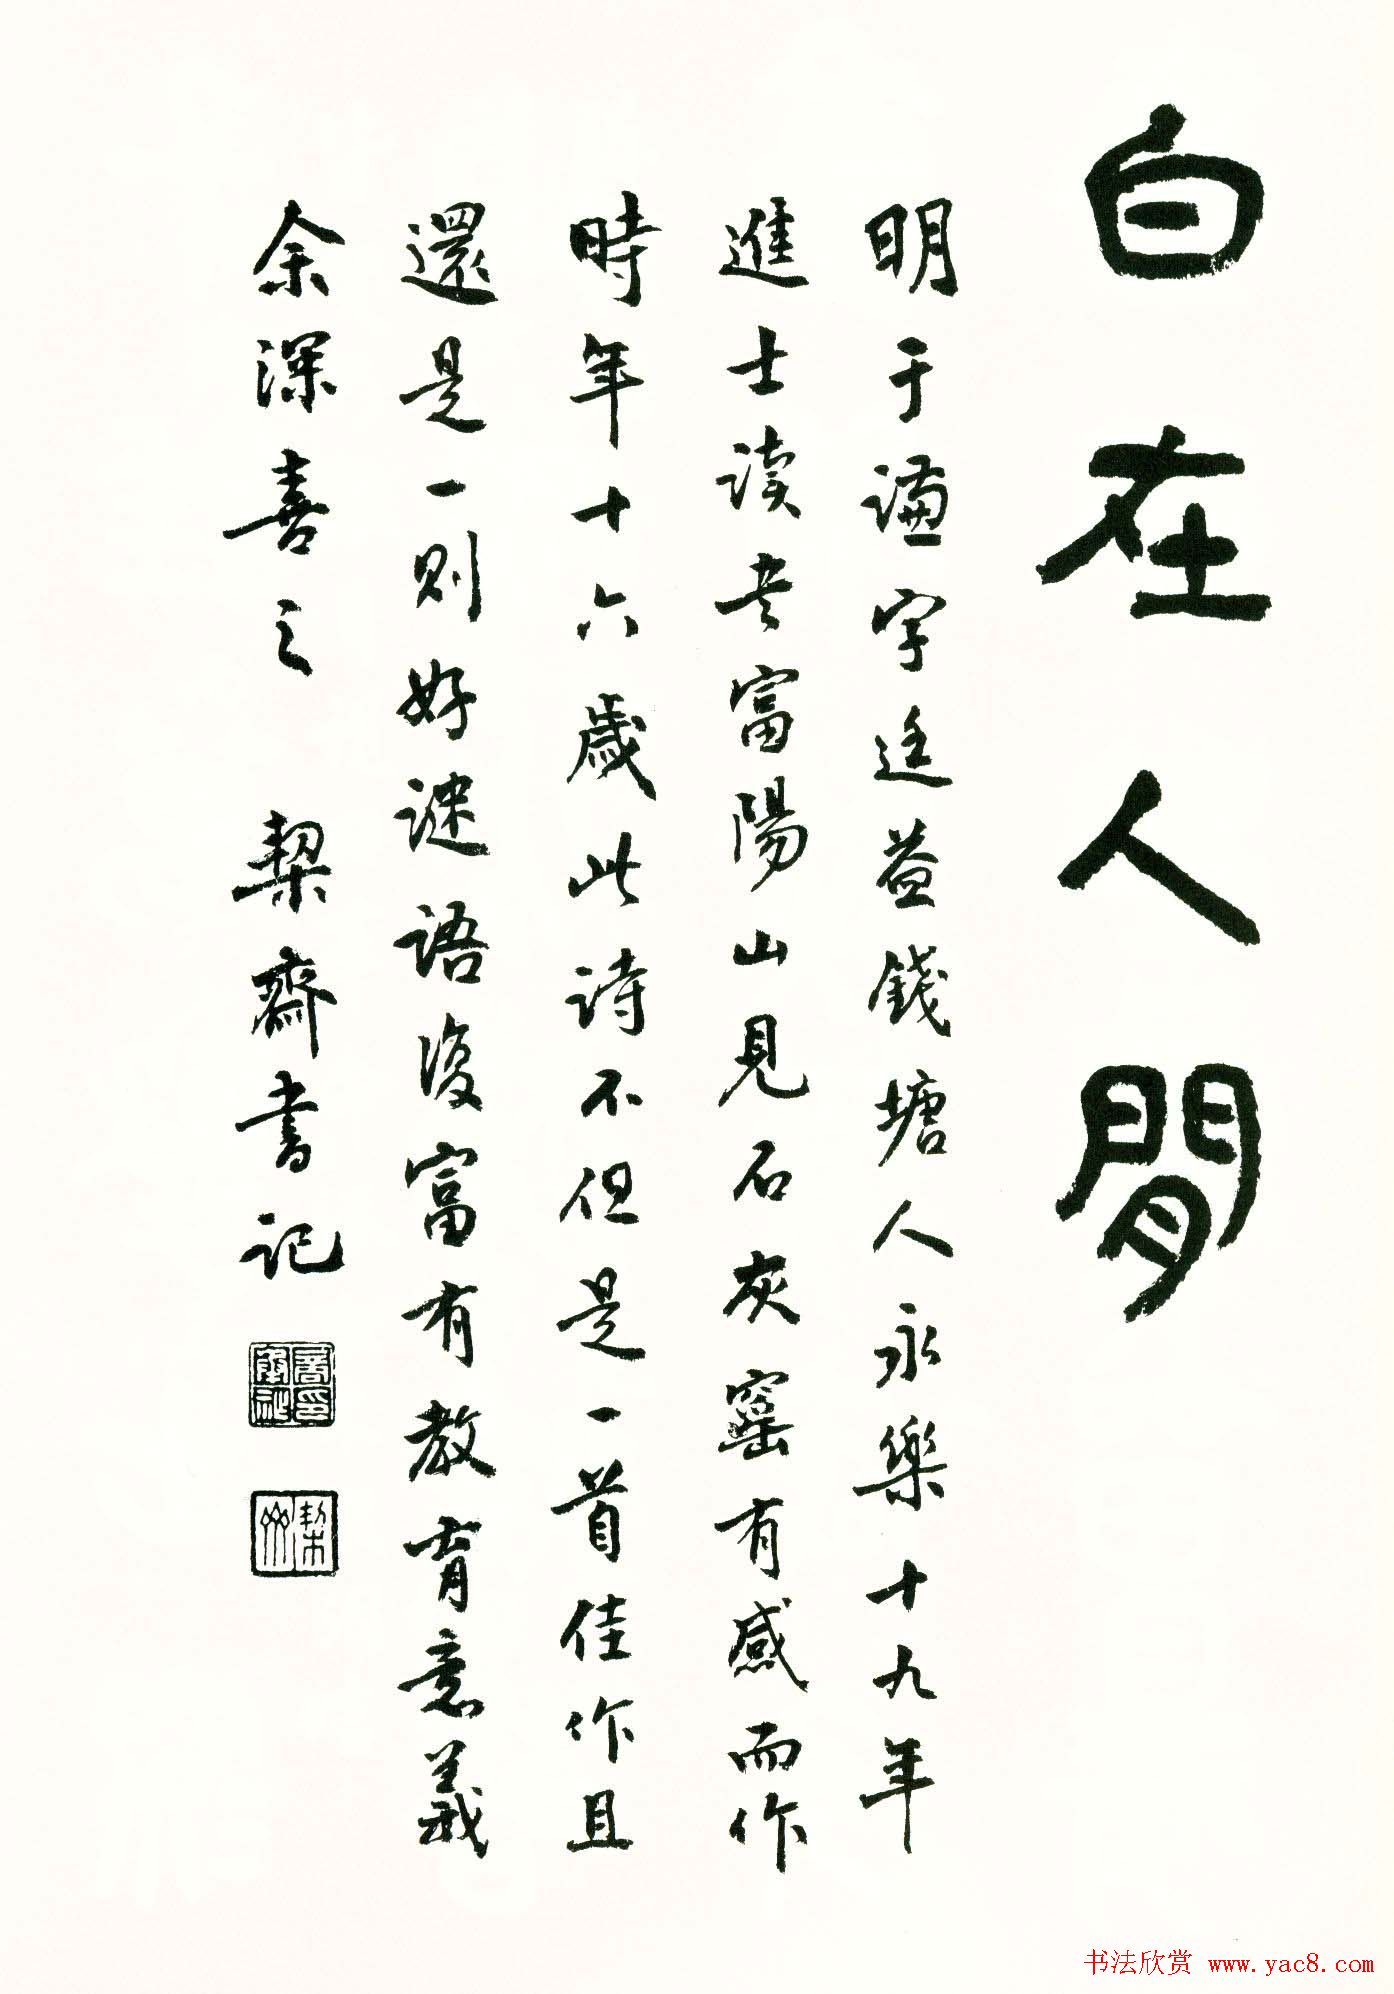 白在人間
明于谦字廷益錢塘人永樂十九年
進士读书富陽山見石灰窑有感而作
時年十六歲此诗不但是一首佳作且
還是一则好谜语復富有教育意義
余深喜之 契齋書记
书法欣赏 www.yac8.com